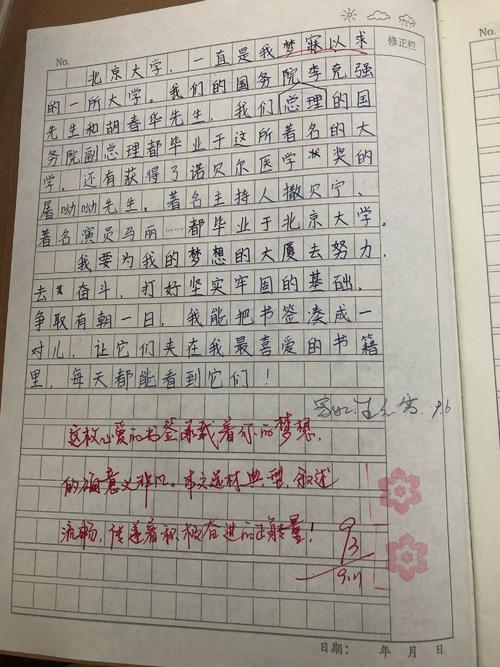 No.
修正栏
北京大学，一直是我梦寐以求
的一所大学。我们的国务院李克强
先生和胡春华先生，我们总理的国
务院副总理都毕业于这所著名的大
学。还有获得了诺贝尔医学奖的
屠呦呦先生，著名主持人撒贝宁、
著名演员马丽……都毕业于北京大学。
我要为我的梦想的大厦去努力，
去奋斗，打好坚实牢固的基础，
争取有朝一日，我能把书签凑成一
对儿，让它们夹在我最喜爱的书籍
里，每天都能看到它们！
9.6
这枚心爱的书签承载着你的梦想，
的确意义非凡。本文选材典型，叙述
流畅，传递着积极奋进的正能量！
93
9.11
日期： 年 月 日
No.